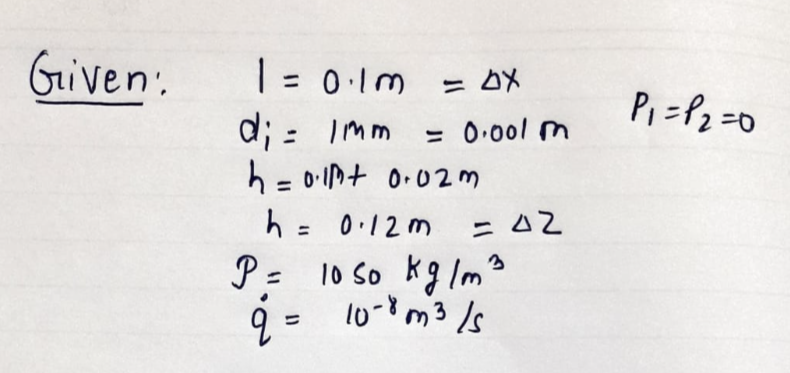 Given: l = 0.1m = Δx
di = 1mm = 0.001 m P1 = P2 = 0
h = 0.1m + 0.02m
h = 0.12m = ΔZ
ρ = 1050 kg/m³
q̇ = 10⁻⁸ m³/s